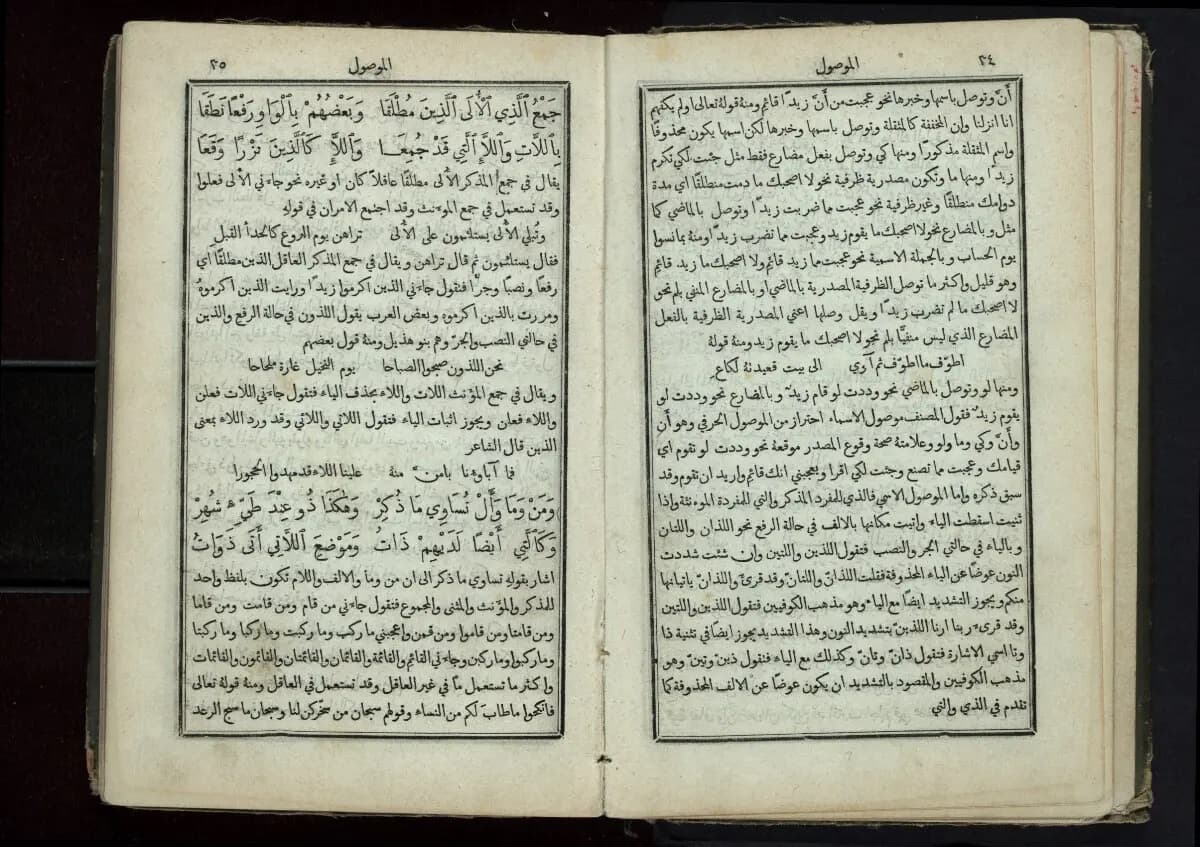 الموصول
٢٤
أنّ وتوصل باسمها وخبرها نحو عجبت من أنّ زيدًا قائم ومنه قوله تعالى اولم يكفهم
انا انزلنا وإن المخففة كالمثقلة وتوصل باسمها وخبرها لكن اسمها يكون محذوفًا
واسم المثقلة مذكورًا ومنها كي وتوصل بفعل مضارع فقط مثل جئت لكي تكرم
زيدًا ومنها ما وتكون مصدرية ظرفية نحو لا اصحبك ما دمت منطلقًا اي مدة
دوامك منطلقًا وغير ظرفية نحو عجبت مما ضربت زيدًا وتوصل بالماضي كما
مثل وبالمضارع نحو لا اصحبك ما يقوم زيد وعجبت مما تضرب زيدًا ومنه بما نسوا
يوم الحساب وبالجملة الاسمية نحو عجبت مما زيد قائم ولا اصحبك ما زيد قائم
وهو قليل واكثر ما توصل الظرفية المصدرية بالماضي او بالمضارع المنفي بلم نحو
لا اصحبك ما لم تضرب زيدًا ويقل وصلها اعني المصدرية الظرفية بالفعل
المضارع الذي ليس منفيًا بلم نحو لا اصحبك ما يقوم زيد ومنه قوله
اطوّف ما اطوّف ثم آوي الى بيت قعيدتهُ لكاعِ
ومنها لو وتوصل بالماضي نحو وددت لو قام زيدٌ وبالمضارع نحو وددت لو
يقوم زيدٌ فقول المصنف موصول الاسماء احتراز من الموصول الحرفي وهو أن
وأنّ وكي وما ولو وعلامته صحة وقوع المصدر موقعه نحو وددت لو تقوم اي
قيامك وعجبت مما تصنع وجئت لكي اقرا ويعجبني انك قائم واريد ان تقوم وقد
سبق ذكره واما الموصول الاسمي فالذي للمفرد المذكر والتي للمفردة الموءنثة واذا
ثنيت اسقطت الياء واتيت مكانها بالالف في حالة الرفع نحو اللذان واللتان
وبالياء في حالتي الجر والنصب فتقول اللذين واللتين وإن شئت شددت
النون عوضًا عن الياء المحذوفة فقلت اللذانّ واللتانّ وقد قرئ واللذانّ ياتيانها
منكم ويجوز التشديد ايضًا مع الياء وهو مذهب الكوفيين فتقول اللذينّ واللتينّ
وقد قرىء ربنا ارنا اللذينّ بتشديد النون وهذا التشديد يجوز ايضًا في تثنية ذا
وتا اسمي الاشارة فتقول ذانّ وتانّ وكذلك مع الياء فتقول ذينّ وتينّ وهو
مذهب الكوفيين والمقصود بالتشديد ان يكون عوضًا عن الالف المحذوفة كما
تقدم في الذي والتي
الموصول
٢٥
جَمْعُ ٱلَّذِي ٱلْأُلَى ٱلَّذِينَ مُطْلَقَا وَبَعْضُهُمْ بِٱلْوَاوِ رَفْعًا نَطَقَا
بِٱللَّاتِ وَٱللَّاءِ ٱلَّتِي قَدْ جُمِعَا وَٱللَّاءِ كَٱلَّذِينَ نَزْرًا وَقَعَا
يقال في جمع المذكر الألى مطلقًا عاقلًا كان او غيره نحو جاءني الألى فعلوا
وقد تستعمل في جمع الموءنث وقد اجتمع الامران في قوله
وتُبلي الألى يستلئمون على الألى تراهن يوم الروع كالحدأ القبل
فقال يستلئمون ثم قال تراهن ويقال في جمع المذكر العاقل الذين مطلقًا اي
رفعًا ونصبًا وجرًّا فتقول جاءني الذين اكرموا زيدًا ورايت الذين اكرموهُ
ومررت بالذين اكرموه وبعض العرب يقول اللذون في حالة الرفع والذين
في حالتي النصب والجرّ وهم بنو هذيل ومنه قول بعضهم
نحن اللذون صبحوا الصباحا يوم النخيل غارة ملحاحا
ويقال في جمع المؤنث اللات واللاء بحذف الياء فتقول جاءني اللات فعلن
واللاء فعلن ويجوز اثبات الياء فتقول اللاتي واللائي وقد ورد اللاء بمعنى
الذين قال الشاعر
فما آباوءنا بامنّ منهُ علينا اللاء قد مهدوا الحجورا
وَمَنْ وَمَا وَأَلْ تُسَاوِي مَا ذُكِرْ وَهٰكَذَا ذُو عِنْدَ طَيِّئٍ شُهِرْ
وَكَٱلَّتِي أَيْضًا لَدَيْهِمْ ذَاتُ وَمَوْضِعَ ٱللَّاتِي أَتَى ذَوَاتُ
اشار بقوله تساوي ما ذكر الى ان من وما والالف واللام تكون بلفظ واحد
للمذكر والمؤنث والمثنى والمجموع فتقول جاءني من قام ومن قامت ومن قاما
ومن قامتا ومن قاموا ومن قمن واعجبني ما ركب وما ركبت وما ركبا وما ركبتا
وما ركبوا وما ركبن وجاءني القائم والقائمة والقائمان والقائمتان والقائمون والقائمات
واكثر ما تستعمل ما في غير العاقل وقد تستعمل في العاقل ومنه قوله تعالى
فانكحوا ما طاب لكم من النساء وقولهم سبحان من سخركن لنا وسبحان ما سبح الرعد